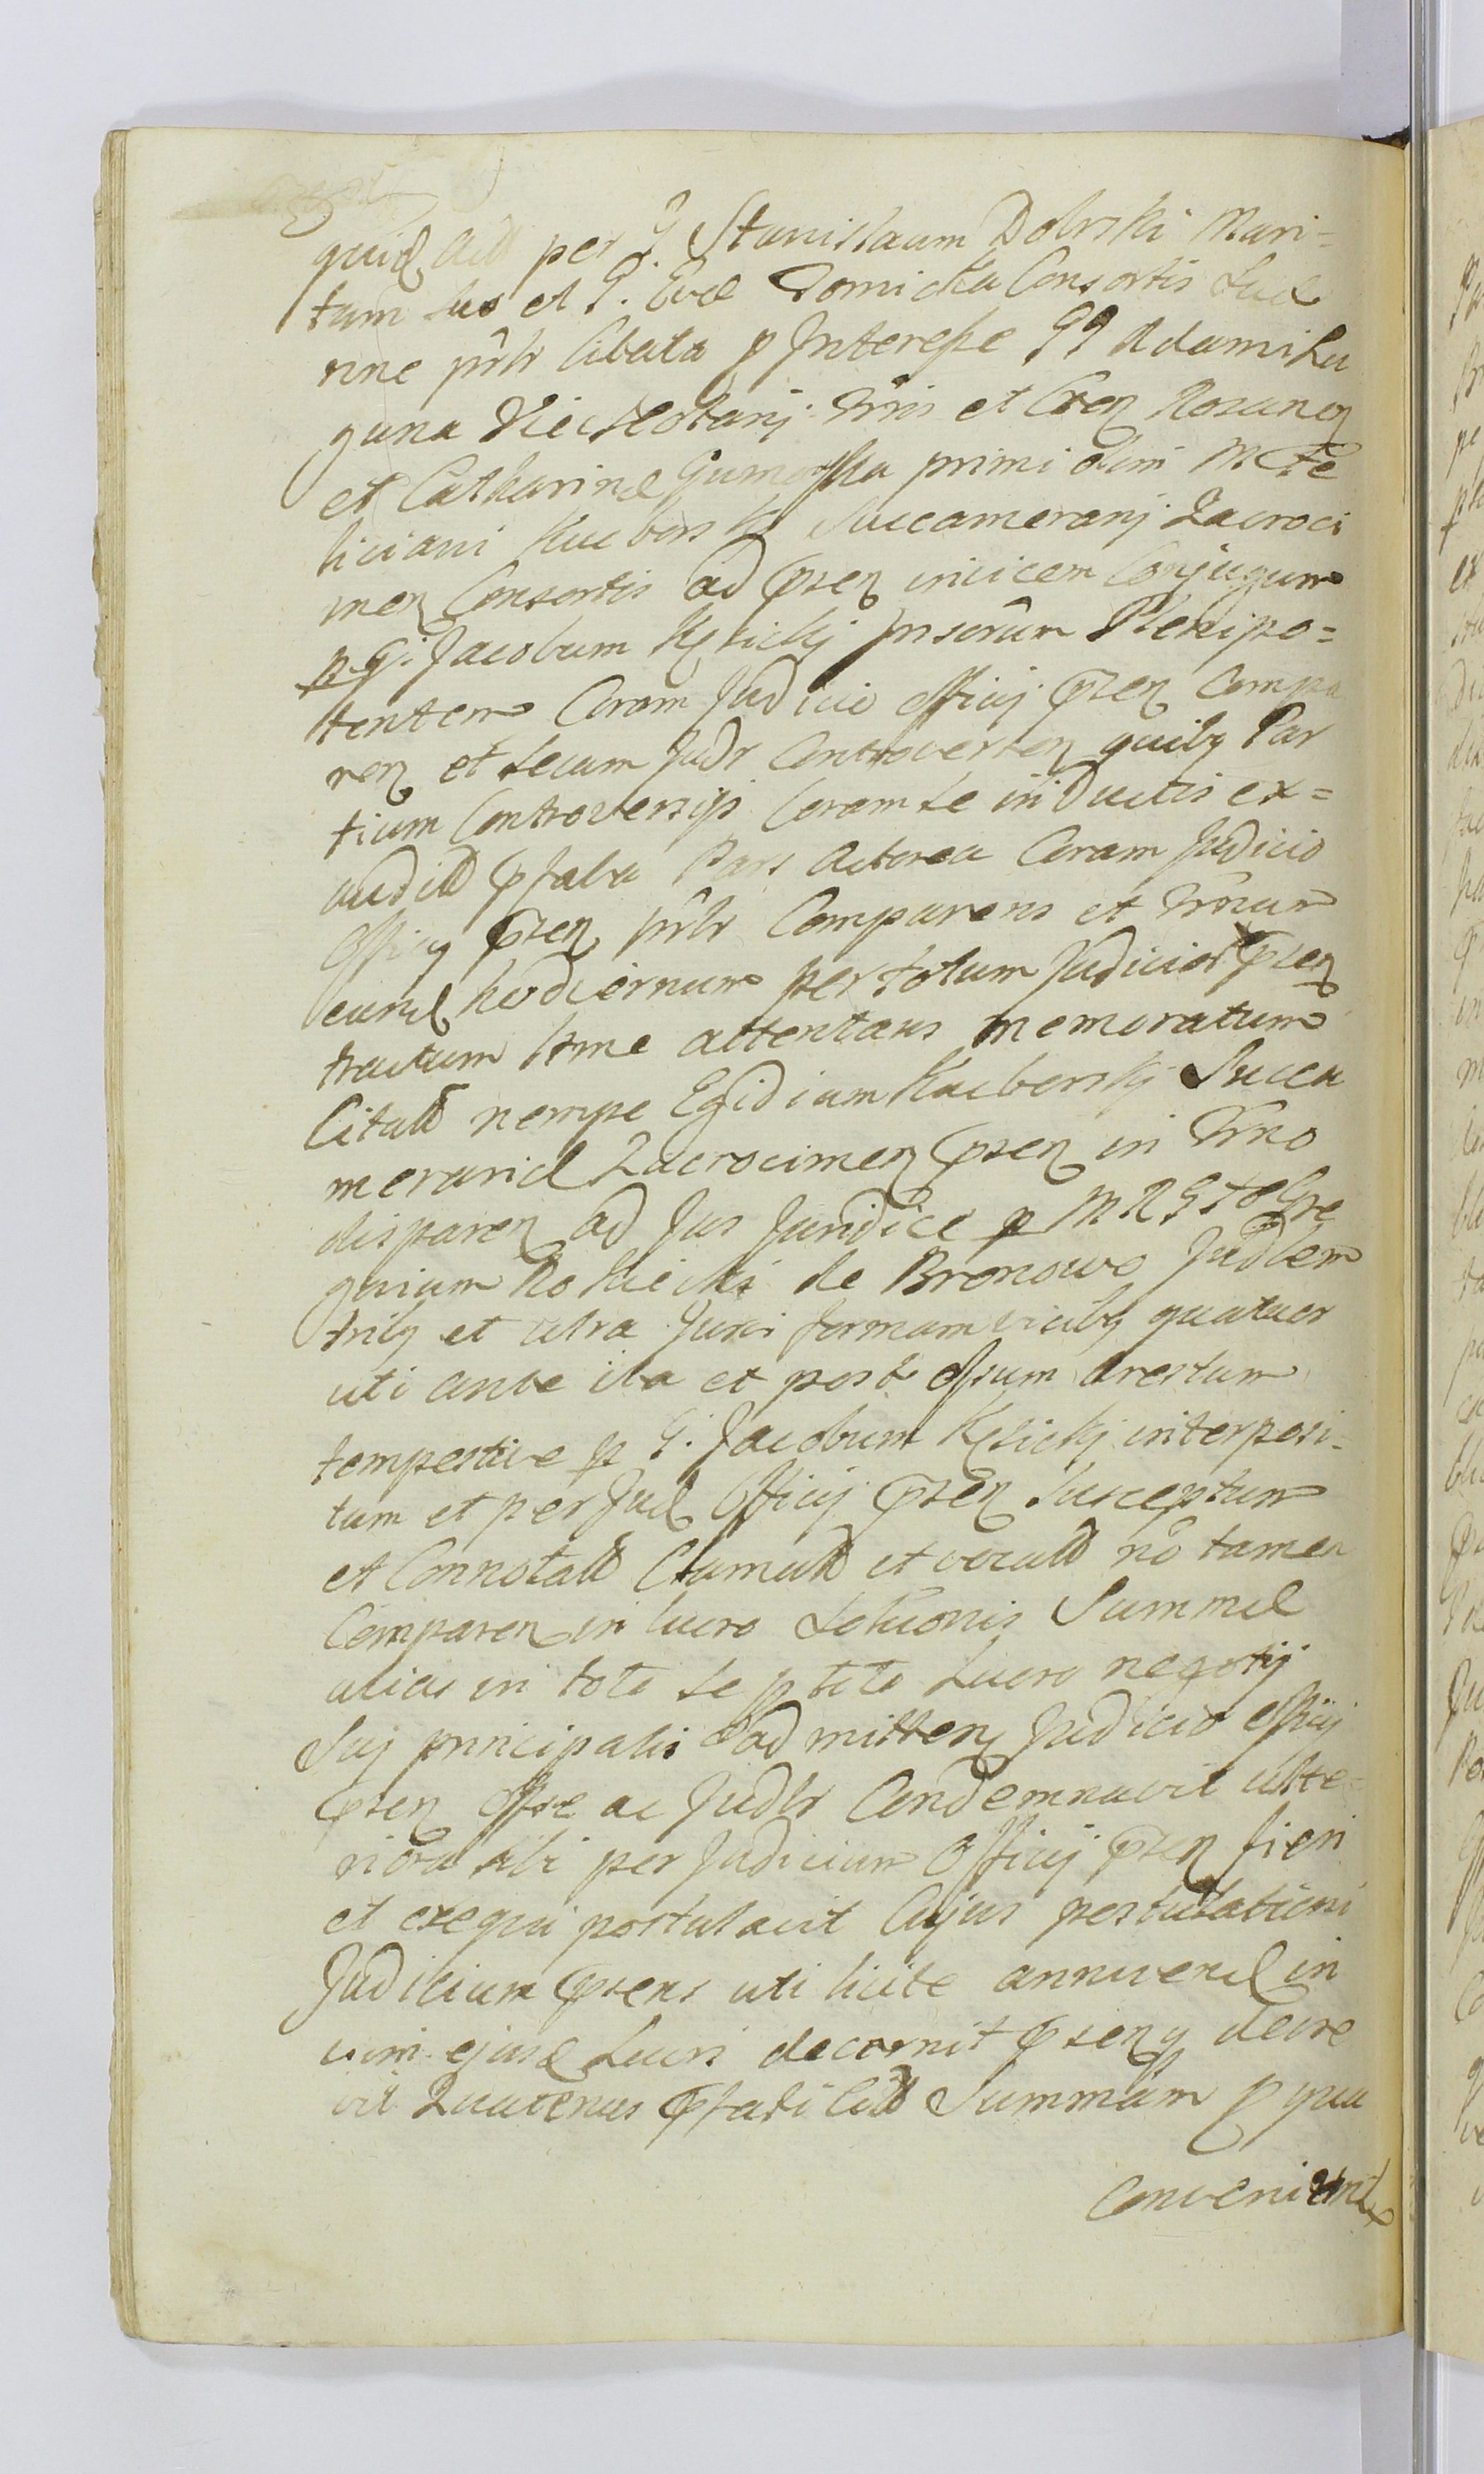 per G. Stanislaum Dolrski Mari=
tum suo et G. Evæ Domicka Consortis
nne pnlr libata p Interesse GG Adami Lu
guna Viceseobanj et Cren Rozanen
et Catharinæ Gumowska primi olim M Fe
liciani Kucborski Succameranj Zacroci
men Consortis ad psen invicem Conjugum
p G. Jacobum Kęsickj Insorum Plenipo=
tentem Coram Judicio officij psen Compa
ren et secum Judr Controverten quibq Par
tium Controversijs Coram se inductis ex=
audit pfata Pars Actorea Coram Judicio
Officij psen pnlr Comparens et Trnum
eund hodiernum per totum Judicior psen
tractum attentans memoratum
Citatt nempe Egidium Kucborskj Succa
merarid Zacrocimen psen in Trno
disparen ad Jus Juridice p M R G
guium Rokicki de Bronowo Judlem
tribq et ultra Juris formam vicibq quatuor
uti ante ita et post offsum Arestum
tempestive p G. Jacobum Kęsickj interposi=
tum et per Jud Officij psen Susceptum
et Connotatt Clamatt et vocatt nō tamen
Comparen in lucro Solucionis Summæ
alias in toto se p toto Lucro negotij
Sui principalis admitten Judicio officij
psen offse ac Judlr Condemnavit ulte=
riora sibi per Judicium Officij psen fieri
et exequi postulavit Cujus postulationi
Judicium psens uti licite annuend in
vim ejusd Lucri decernit psenq decre
vit Quatenus pfati Citt Summam p qua
Conveniund